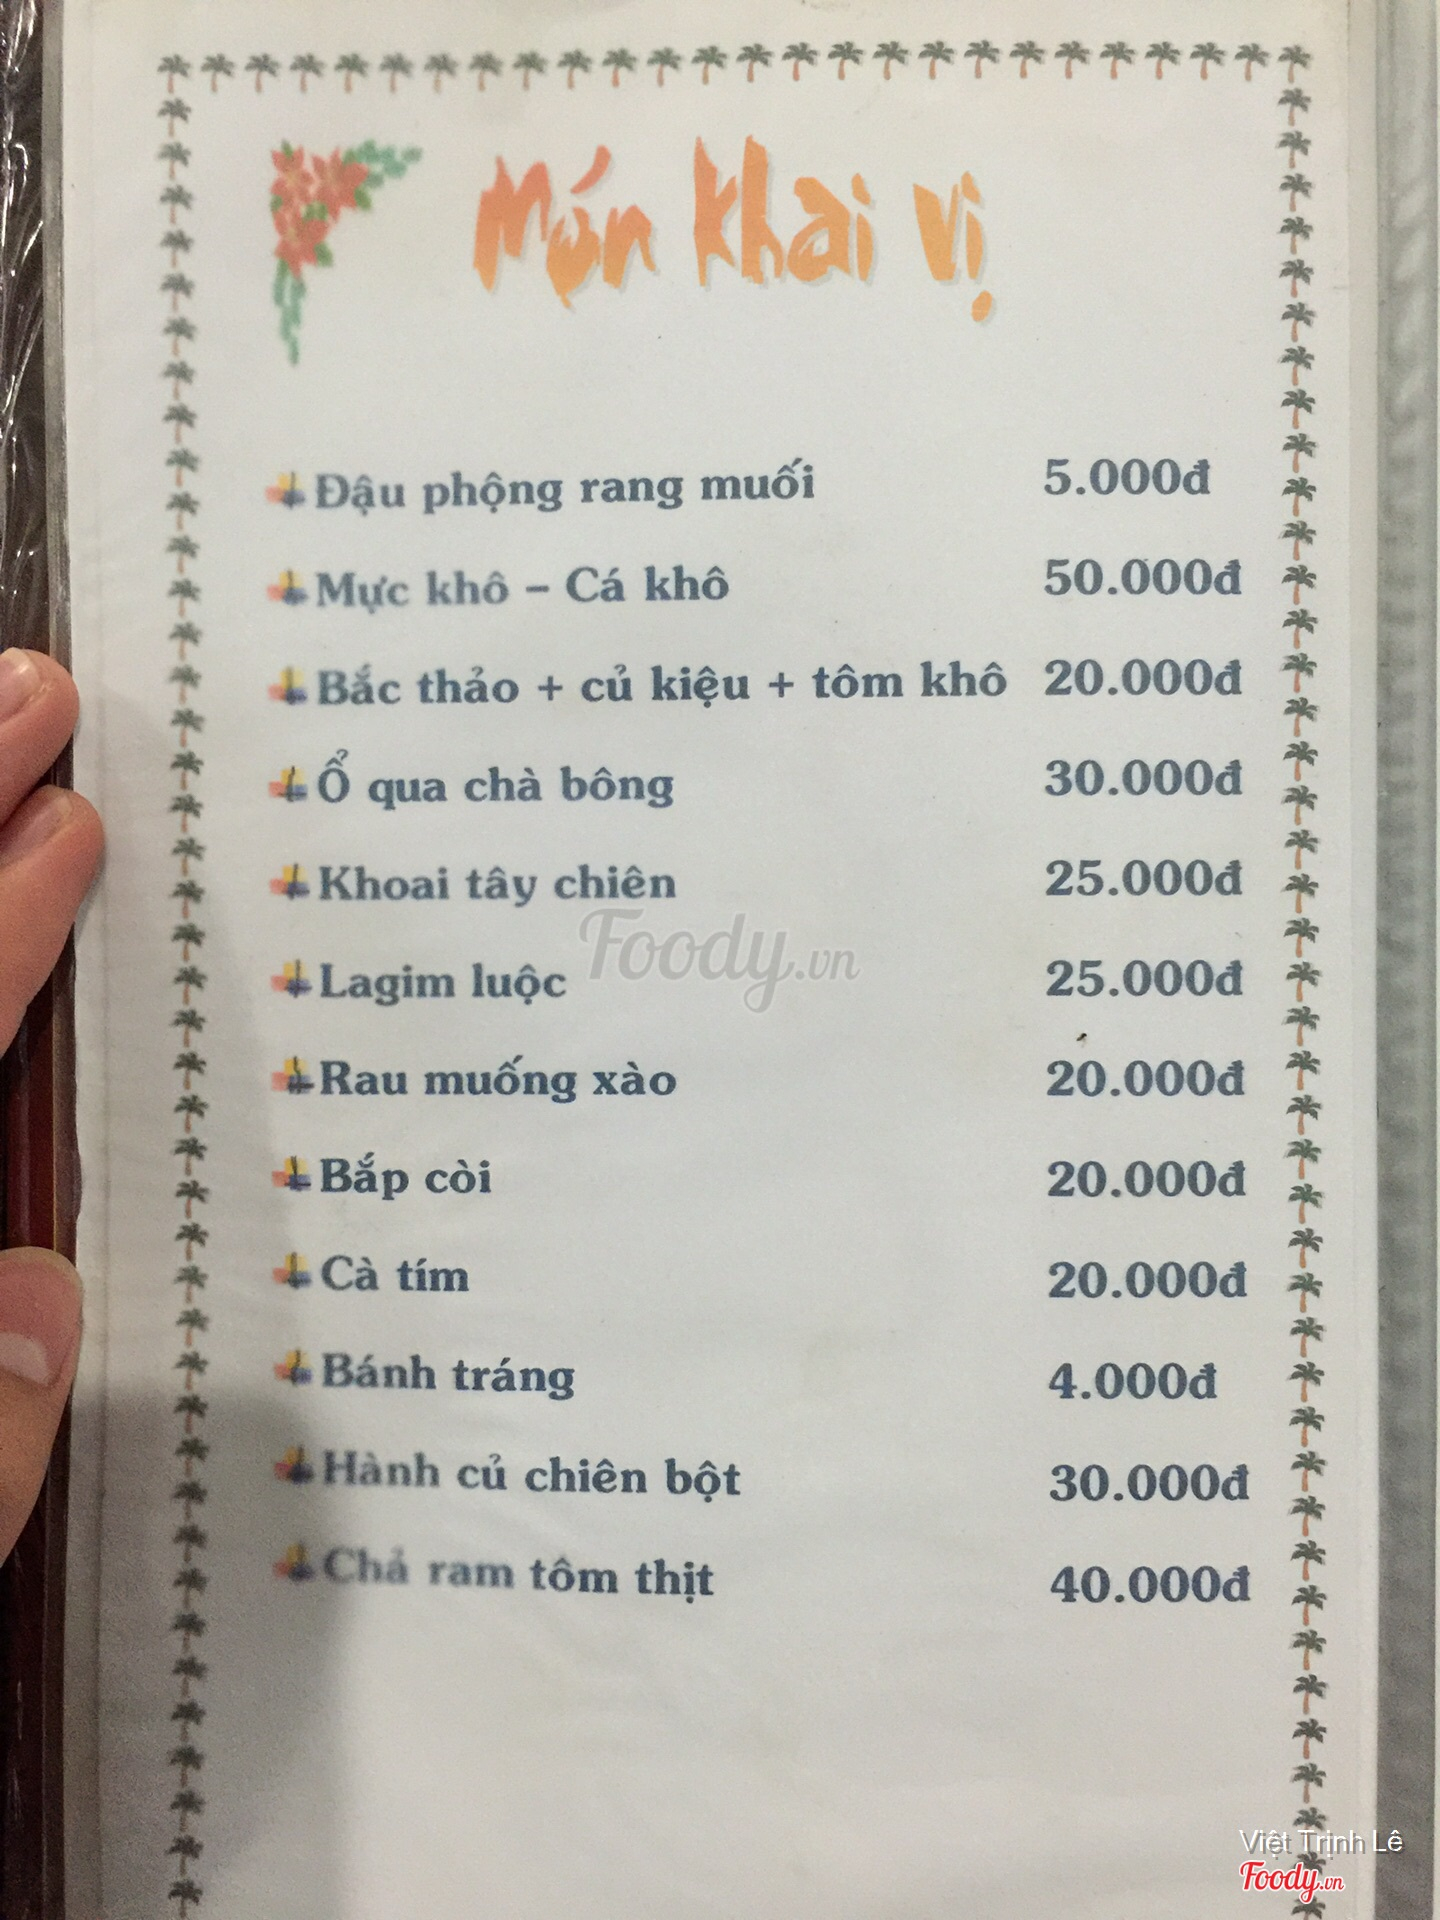 Món khai vị
Đậu phộng rang muối 5.000đ
Mực khô – Cá khô 50.000đ
Bắc thảo + củ kiệu + tôm khô 20.000đ
Ổ qua chà bông 30.000đ
Khoai tây chiên 25.000đ
Lagim luộc 25.000đ
Foody.vn
Rau muống xào 20.000đ
Bắp còi 20.000đ
Cà tím 20.000đ
Bánh tráng 4.000đ
Hành củ chiên bột 30.000đ
Chả ram tôm thịt 40.000đ
Việt Trịnh Lê
Foody.vn